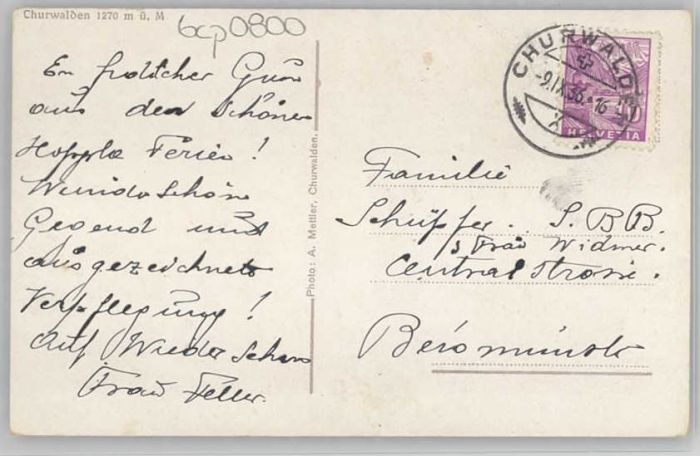 Churwalden 1270 m ü. M
bcp0800
En frölicher Gruss
aus den schönen
Hoppla Ferien!
Wunderschöne
Gegend und
ausgezeichnete
Verpflegung!
Auf Wiedersehen
Frau Feller.
Photo: A. Mettler, Churwalden.
CHURWALDEN
-9.IX.36.-16
HELVETIA
10
Familie
Schüpfer. S.B.B.
Frau Widmer.
Centralstrasse.
Beromünster